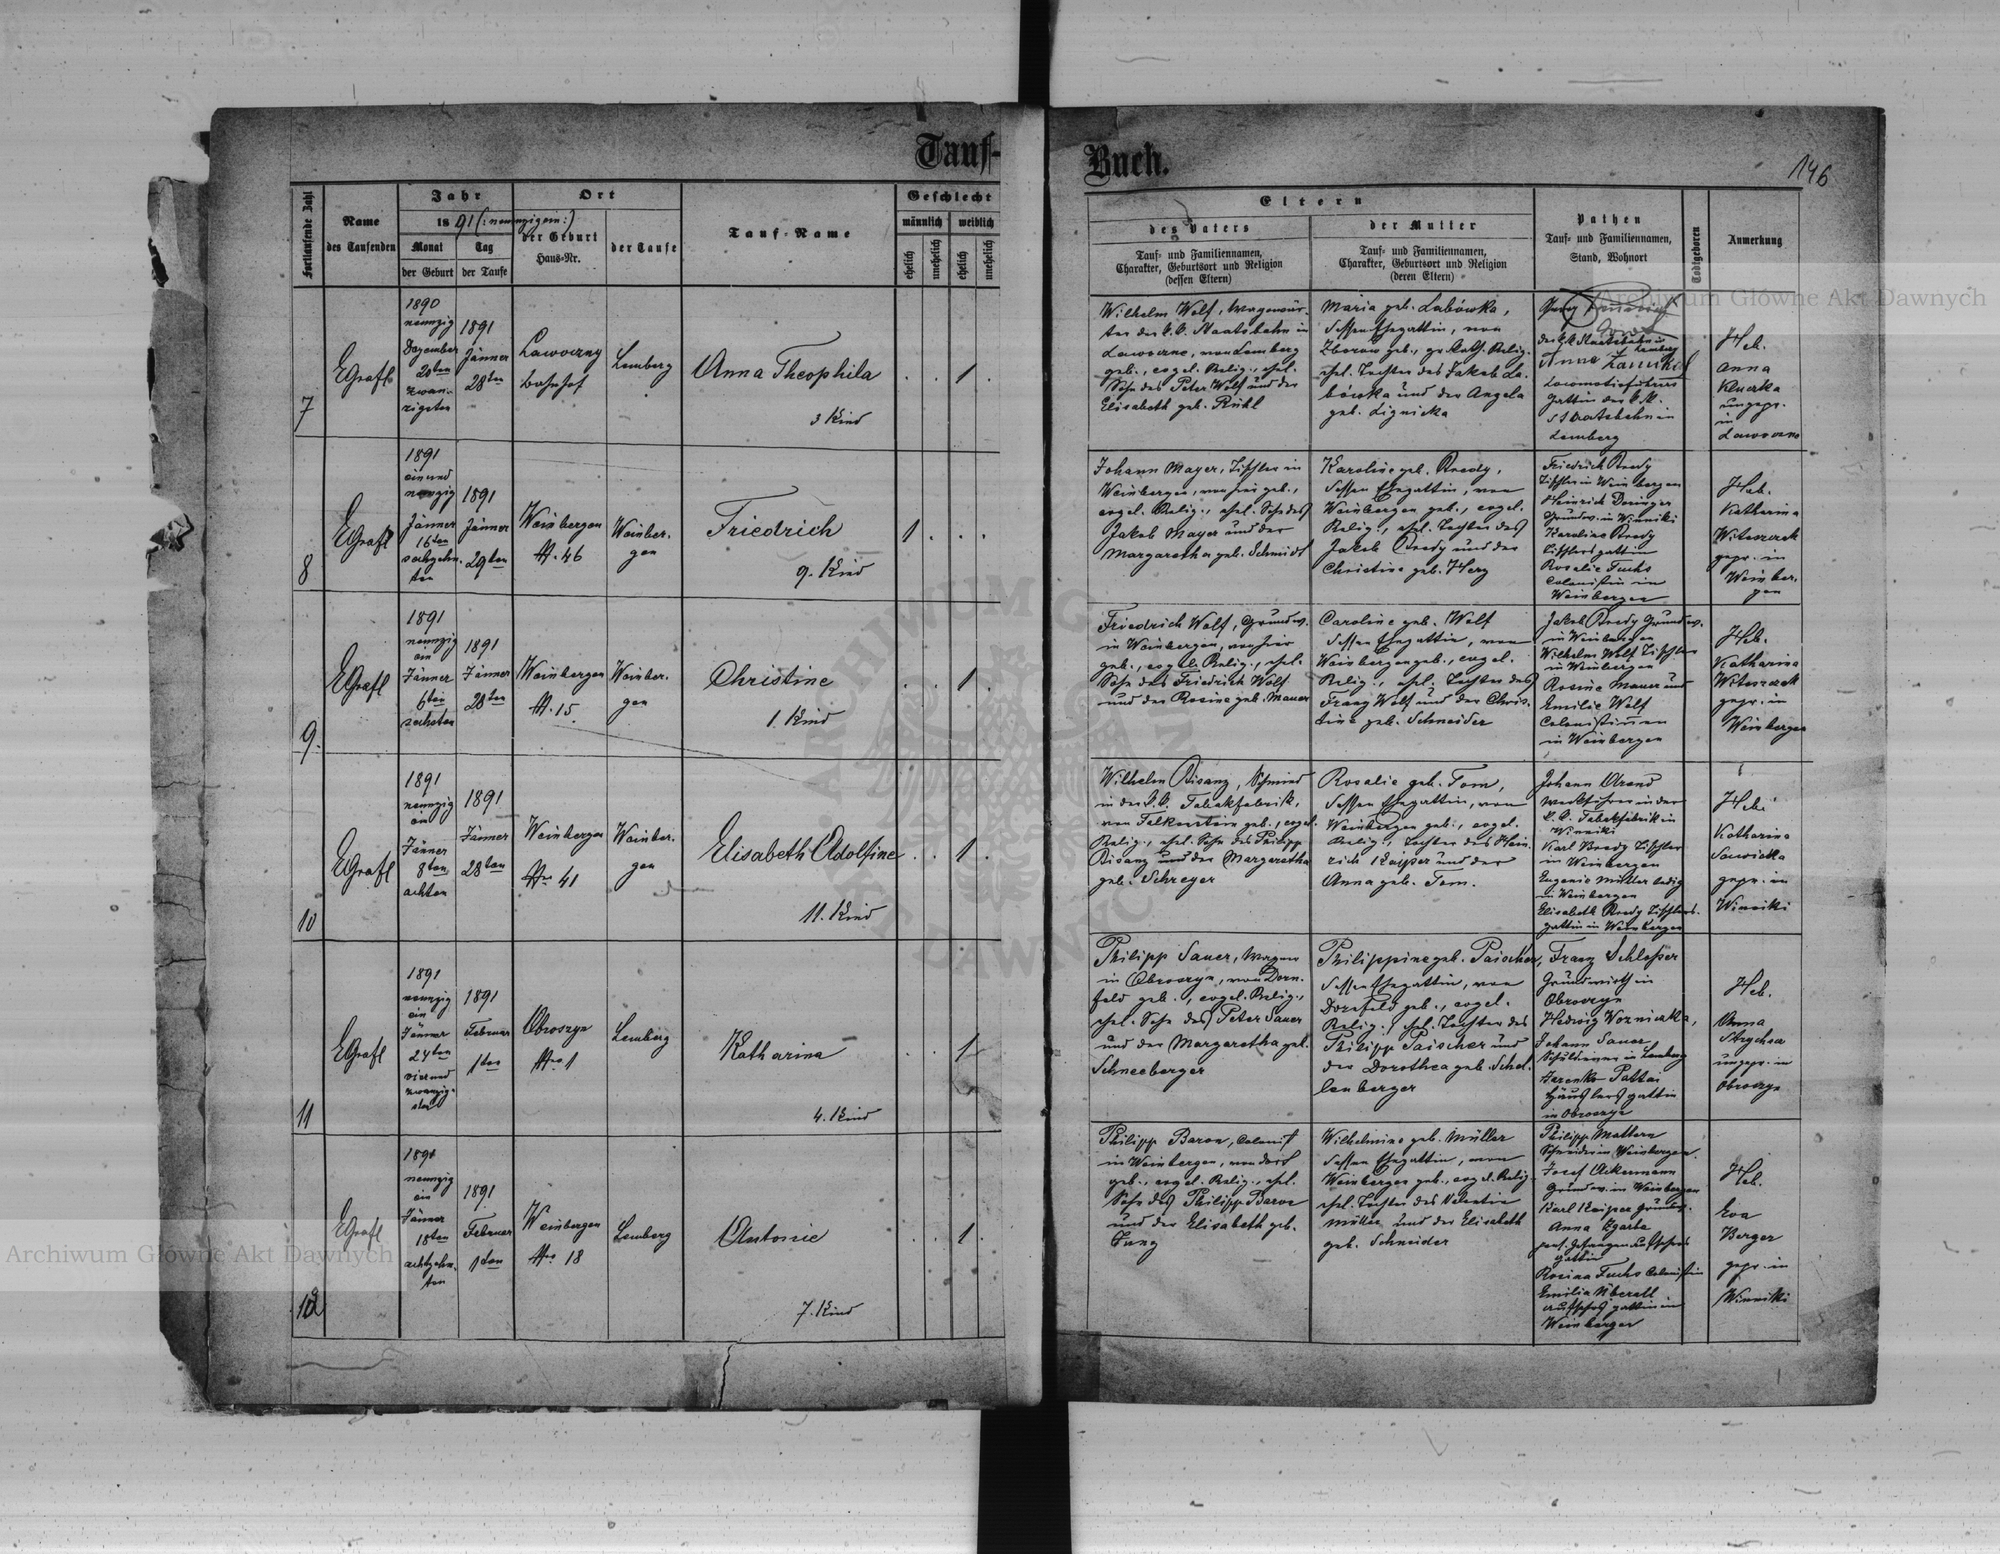 Tauf-
Buch.
146
Fortlaufende Zahl
Name
des Taufenden
Jahr
1891 (: neunzigein :)
Monat
der Geburt
Tag
der Taufe
Ort
der Geburt
Haus-Nr.
der Taufe
Tauf-Name
Geschlecht
männlich
weiblich
ehelich
unehelich
ehelich
unehelich
Eltern
des Vaters
Tauf- und Familiennamen,
Charakter, Geburtsort und Religion
(dessen Eltern)
der Mutter
Tauf- und Familiennamen,
Charakter, Geburtsort und Religion
(deren Eltern)
Pathen
Tauf- und Familiennamen,
Stand, Wohnort
Todtgeboren
Anmerkung
7
EGrafl
1890
neunzig
Dezember
20ten
zwan-
zigsten
1891
Jänner
28ten
Lawoczny
bahnhof
Lemberg
Anna Theophila
3 Kind
1
Wilhelm Wolf, Wagenwär-
ter der k.k. Staatsbahn in
Lawoczne, von Lemberg
geb., evgel. Relig., ehel.
Sohn des Peter Wolf und der
Elisabeth geb. Rühl
Maria geb. Labówka,
dessen Ehegattin, von
Zborow geb., gr. kath. Relig.
ehel. Tochter des Jakob La-
bówka und der Angela
geb. Lignicka
der k.k. Staatsbahn in
Lemberg
Anna
Locomotivführers
gattin der k.k.
Staatsbahn in
Lemberg
Heb.
Anna
Kluczka
ungepr.
in
Lawoczne
8
EGrafl
1891
ein und
neunzig
Jänner
16ten
sechzehn-
ten
1891
Jänner
29ten
Weinbergen
N. 46
Weinber-
gen
Friedrich
9. Kind
1
Johann Mayer, Tischler in
Weinbergen, von hier geb.,
evgel. Relig., ehel. Sohn des
Jakob Mayer und der
Margaretha geb. Schmidt
Karoline geb. Bredy,
dessen Ehegattin, von
Weinbergen geb., evgel.
Relig., ehel. Tochter des
Jakob Bredy und der
Christine geb. Herz
Friedrich Bredy
Tischler in Weinbergen
Heinrich Deringer
Grundw. in Winniki
Karoline Bredy
Tischlersgattin
Rosalie Fuchs
Colonistin in
Weinbergen
Heb.
Katharina
Witeszczak
gepr. in
Weinber-
gen
9.
EGrafl
1891
neunzig
ein
Jänner
6ten
sechsten
1891
Jänner
28ten
Weinbergen
N. 15
Weinber-
gen
Christine
1. Kind
1
Friedrich Wolf, Grundw.
in Weinbergen, von hier
geb., evgel. Relig., ehel.
Sohn des Friedrich Wolf
und der Rosine geb. Mauer
Caroline geb. Wolf
dessen Ehegattin, von
Weinbergen geb., evgel.
Relig., ehel. Tochter des
Franz Wolf und der Chris-
tine geb. Schneider
Jakob Bredy Grundw.
in Weinbergen
Wilhelm Wolf Tischler
in Weinbergen
Rosine Mauer und
Emilie Wolf
Colonistinnen
in Weinbergen
Heb.
Katharina
Witeszczak
gepr. in
Weinbergen
10
EGrafl
1891
neunzig
ein
Jänner
8ten
achten
1891
Jänner
28ten
Weinbergen
Nro 41
Weinber-
gen
Elisabeth Adolfine
11. Kind
1
Wilhelm Bisanz, Schmied
in der k.k. Tabakfabrik,
von Falkenstein geb., evgel.
Relig., ehel. Sohn des Philipp
Bisanz und der Margaretha
geb. Schreyer
Rosalie geb. Tom,
dessen Ehegattin, von
Weinbergen geb., evgel.
Relig., Tochter des Hein-
rich Kaiper und der
Anna geb. Tom.
Johann Arend
Werkführer in der
k.k. Tabakfabrik in
Winniki
Karl Bredy Tischler
in Weinbergen
Eugenie Müller ledig
in Weinbergen
Elisabeth Bredy Tischlers-
gattin in Weinbergen
Heb.
Katharina
Sawicka
gepr. in
Winniki
11
EGrafl
1891
neunzig
ein
Jänner
24ten
vier und
zwanzig-
sten
1891
Februar
1ten
Obroszyn
Nro 1
Lemberg
Katharina
4. Kind
1
Philipp Sauer, Wagner
in Obroszyn, von Dorn-
feld geb., evgel. Relig.,
ehel. Sohn des Peter Sauer
und der Margaretha geb.
Schneeberger
Philippine geb. Paischer,
dessen Ehegattin, von
Dornfeld geb., evgel.
Relig., ehel. Tochter des
Philipp Paischer und
der Dorothea geb. Schol-
lenberger
Franz Schlosser
Grundwirth in
Obroszyn
Hedwig Wozniczka,
Johann Sauer
Schuldiener in Lemberg
Häuslersgattin
in Obroszyn
Heb.
Anna
ungepr. in
Obroszyn
12
EGrafl
1891
neunzig
ein
Jänner
18ten
achtzehn-
ten
1891
Februar
1ten
Weinbergen
Nro 18
Lemberg
Antonie
7. Kind
1
Philipp Baron, Colonist
in Weinbergen, von dort
geb., evgel. Relig., ehel.
Sohn des Philipp Baron
und der Elisabeth geb.
Jung
Wilhelmine geb. Müller
dessen Ehegattin, von
Weinbergen geb., evgel. Relig.
ehel. Tochter des Valentin
Müller und der Elisabeth
geb. Schneider
Philipp Mattern
Schneider in Weinbergen.
Josef Ackermann
Grundw. in Weinbergen
Karl Kaiper Grundw.
Anna Egarta
pens. Gefangenaufsehers
gattin
Rosina Fuchs Colonistin
Emilia Überall
Aufsehersgattin in
Weinbergen
Heb.
Eva
Berger
gepr. in
Winniki
Archiwum Główne Akt Dawnych
Archiwum Główne Akt Dawnych